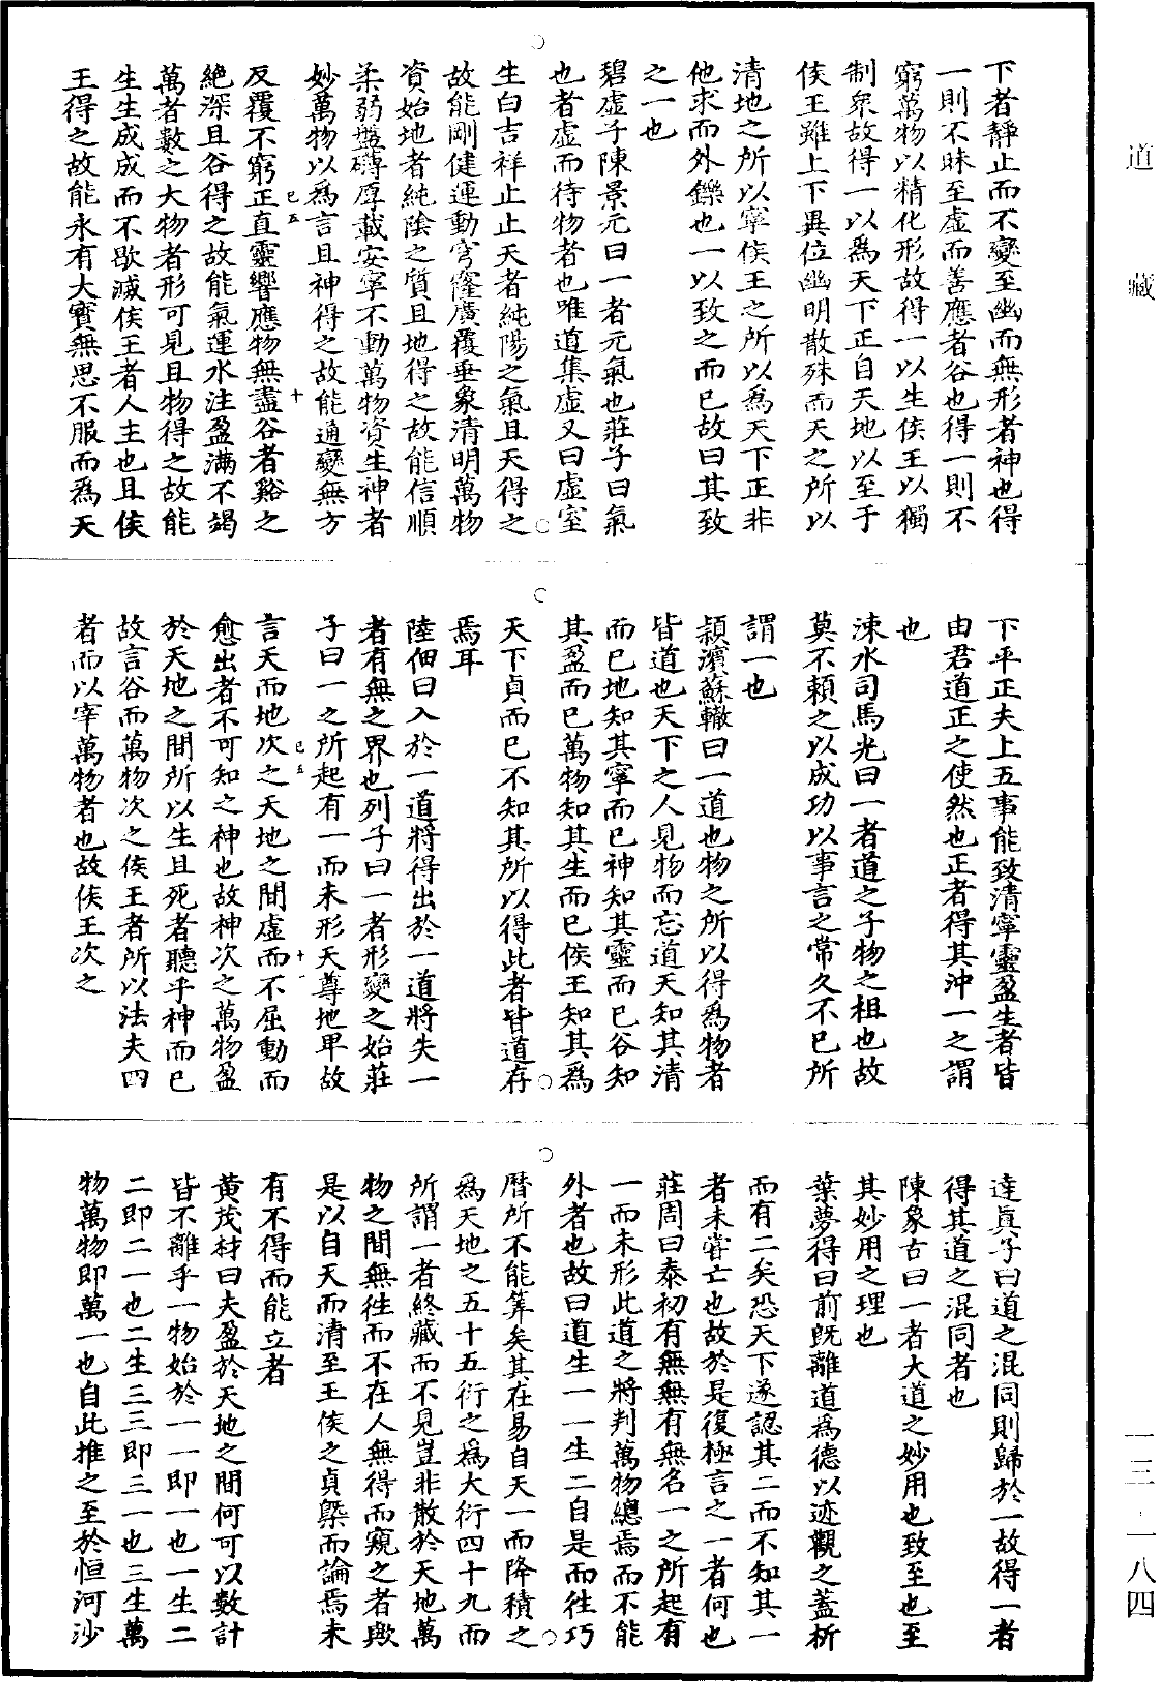 道藏
下者靜止而不變至幽而無形者神也得
一則不昧至虛而善應者谷也得一則不
窮萬物以精化形故得一以生侯王以獨
制衆故得一以爲天下正自天地以至于
侯王雖上下異位幽明散殊而天之所以
清地之所以寧侯王之所以爲天下正非
他求而外鑠也一以致之而已故曰其致
之一也
碧虛子陳景元曰一者元氣也莊子曰氣
也者虛而待物者也唯道集虛又曰虛室
生白吉祥止止天者純陽之氣且天得之
故能剛健運動穹窿廣覆垂象清明萬物
資始地者純陰之質且地得之故能信順
柔弱盤礴厚載安寧不動萬物資生神者
妙萬物以爲言且神得之故能通變無方
己五 十
反覆不窮正直靈響應物無盡谷者谿之
絕深且谷得之故能氣運水注盈滿不竭
萬者數之大物者形可見且物得之故能
生生成成而不歇滅侯王者人主也且侯
王得之故能永有大寶無思不服而爲天
下平正夫上五事能致清寧靈盈生者皆
由君道正之使然也正者得其沖一之謂
也
涑水司馬光曰一者道之子物之祖也故
莫不賴之以成功以事言之常久不已所
謂一也
潁濱蘇轍曰一道也物之所以得爲物者
皆道也天下之人見物而忘道天知其清
而已地知其寧而已神知其靈而已谷知
其盈而已萬物知其生而已侯王知其爲
天下貞而已不知其所以得此者皆道存
焉耳
陸佃曰入於一道將得出於一道將失一
者有無之界也列子曰一者形變之始莊
子曰一之所起有一而未形天尊地卑故
己五 十一
言天而地次之天地之間虛而不屈動而
愈出者不可知之神也故神次之萬物盈
於天地之間所以生且死者聽乎神而已
故言谷而萬物次之侯王者所以法夫四
者而以宰萬物者也故侯王次之
達眞子曰道之混同則歸於一故得一者
得其道之混同者也
陳象古曰一者大道之妙用也致至也至
其妙用之理也
葉夢得曰前既離道爲德以迹觀之蓋析
而有二矣恐天下遂認其二而不知其一
者未嘗亡也故於是復極言之一者何也
莊周曰泰初有無無有無名一之所起有
一而未形此道之將判萬物總焉而不能
外者也故曰道生一一生二自是而往巧
曆所不能筭矣其在易自天一而降積之
爲天地之五十五衍之爲大衍四十九而
所謂一者終藏而不見豈非散於天地萬
物之間無往而不在人無得而窺之者歟
是以自天而清至王侯之貞槩而論焉未
有不得而能立者
黃茂材曰夫盈於天地之間何可以數計
皆不離乎一物始於一一即一也一生二
二即二一也二生三三即三一也三生萬
物萬物即萬一也自此推之至於恒河沙
一三·一八四